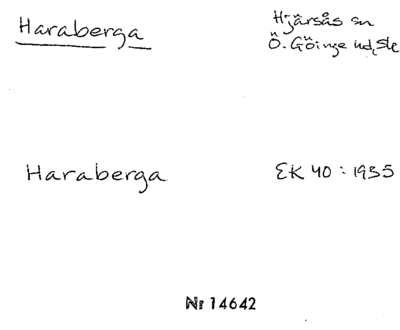 Haraberga
Hjärsås sn
Ö. Göinge hd, Sk
Haraberga
EK 40 : 1935
Nr 14642